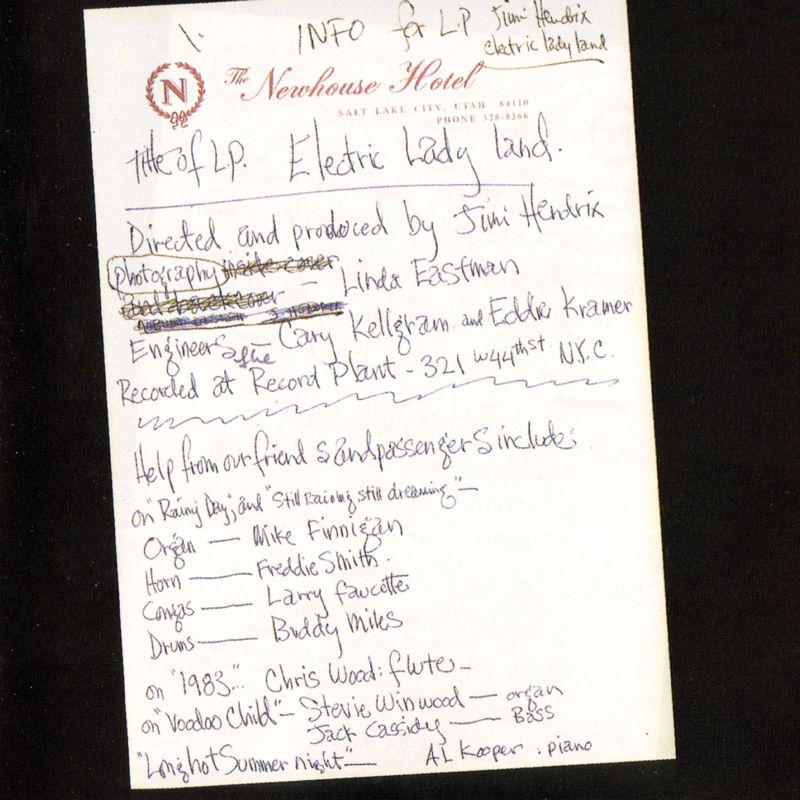 1. INFO for L.P Jimi Hendrix
electric lady land
N
The Newhouse Hotel
SALT LAKE CITY, UTAH 84110
PHONE 328-8366
title of L.P. Electric Lady land.
Directed and produced by Jimi Hendrix
photography inside cover - Linda Eastman
and back cover
Engineers - Gary Kellgram and Eddie Kramer
Recorded at the Record Plant - 321 w 44th st N.Y.C.
Help from our friends and passengers include;
on "Rainy Day", and "Still Raining still dreaming" -
Organ - Mike Finnigan
Horn - Freddie Smith.
Congas - Larry faucette
Drums - Buddy Miles
on "1983.." Chris Wood: flute -
on "Voodoo Child" - Stevie Winwood - organ
Jack Cassidy - Bass
"Long hot Summer night" - AL Kooper : piano